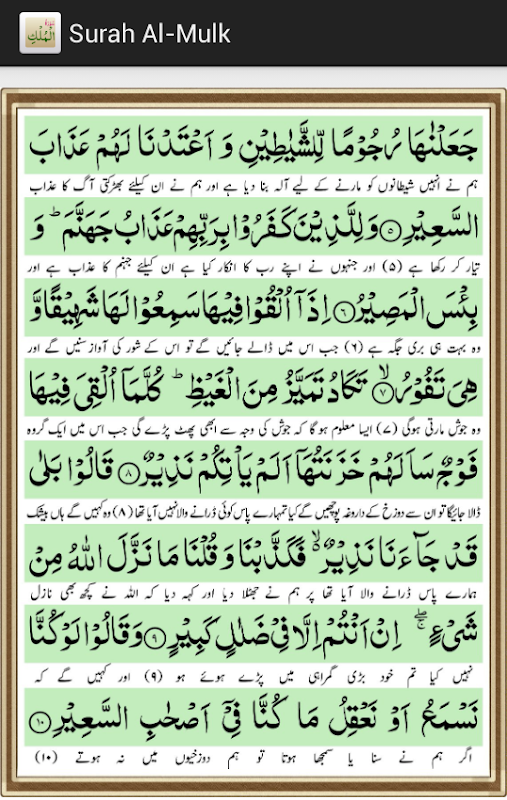 Surah Al-Mulk
جَعَلْنٰهَا رُجُوْمًا لِّلشَّيٰطِيْنِ وَ اَعْتَدْنَا لَهُمْ عَذَابَ
ہم نے انہیں شیطانوں کو مارنے کے لیے آلہ بنا دیا ہے اور ہم نے ان کیلئے بھڑکتی آگ کا عذاب
السَّعِيْرِ ۵ وَ لِلَّذِيْنَ كَفَرُوْا بِرَبِّهِمْ عَذَابُ جَهَنَّمَ ؕ وَ
تیار کر رکھا ہے (۵) اور جنہوں نے اپنے رب کا انکار کیا ہے ان کیلئے جہنم کا عذاب ہے اور
بِئْسَ الْمَصِيْرُ ۶ اِذَاۤ اُلْقُوْا فِيْهَا سَمِعُوْا لَهَا شَهِيْقًا وَّ
وہ بہت ہی بری جگہ ہے (۶) جب اس میں ڈالے جائیں گے تو اس کے شور کی آواز سنیں گے اور
هِيَ تَفُوْرُ ۙ۷ تَكَادُ تَمَيَّزُ مِنَ الْغَيْظِ ؕ كُلَّمَاۤ اُلْقِيَ فِيْهَا
وہ جوش مارتی ہوگی (۷) ایسا معلوم ہو گا کہ جوش کی وجہ سے ابھی پھٹ پڑے گی جب اس میں ایک گروہ
فَوْجٌ سَاَلَهُمْ خَزَنَتُهَاۤ اَلَمْ يَاْتِكُمْ نَذِيْرٌ ۸ قَالُوْا بَلٰى
ڈالا جائیگا تو ان سے دوزخ کے داروغہ پوچھیں گے کیا تمہارے پاس کوئی ڈرانے والا نہیں آیا تھا (۸) وہ کہیں گے ہاں بیشک
قَدْ جَآءَنَا نَذِيْرٌ ۙ فَكَذَّبْنَا وَ قُلْنَا مَا نَزَّلَ اللّٰهُ مِنْ
ہمارے پاس ڈرانے والا آیا تھا پر ہم نے جھٹلا دیا اور کہہ دیا کہ اللہ نے کچھ بھی نازل
شَيْءٍ ۖۚ اِنْ اَنْتُمْ اِلَّا فِيْ ضَلٰلٍ كَبِيْرٍ ۹ وَ قَالُوْا لَوْ كُنَّا
نہیں کیا تم خود بڑی گمراہی میں پڑے ہوئے ہو (۹) اور کہیں گے کہ
نَسْمَعُ اَوْ نَعْقِلُ مَا كُنَّا فِيْۤ اَصْحٰبِ السَّعِيْرِ ۱۰
اگر ہم نے سنا یا سمجھا ہوتا تو ہم دوزخیوں میں نہ ہوتے (۱۰)